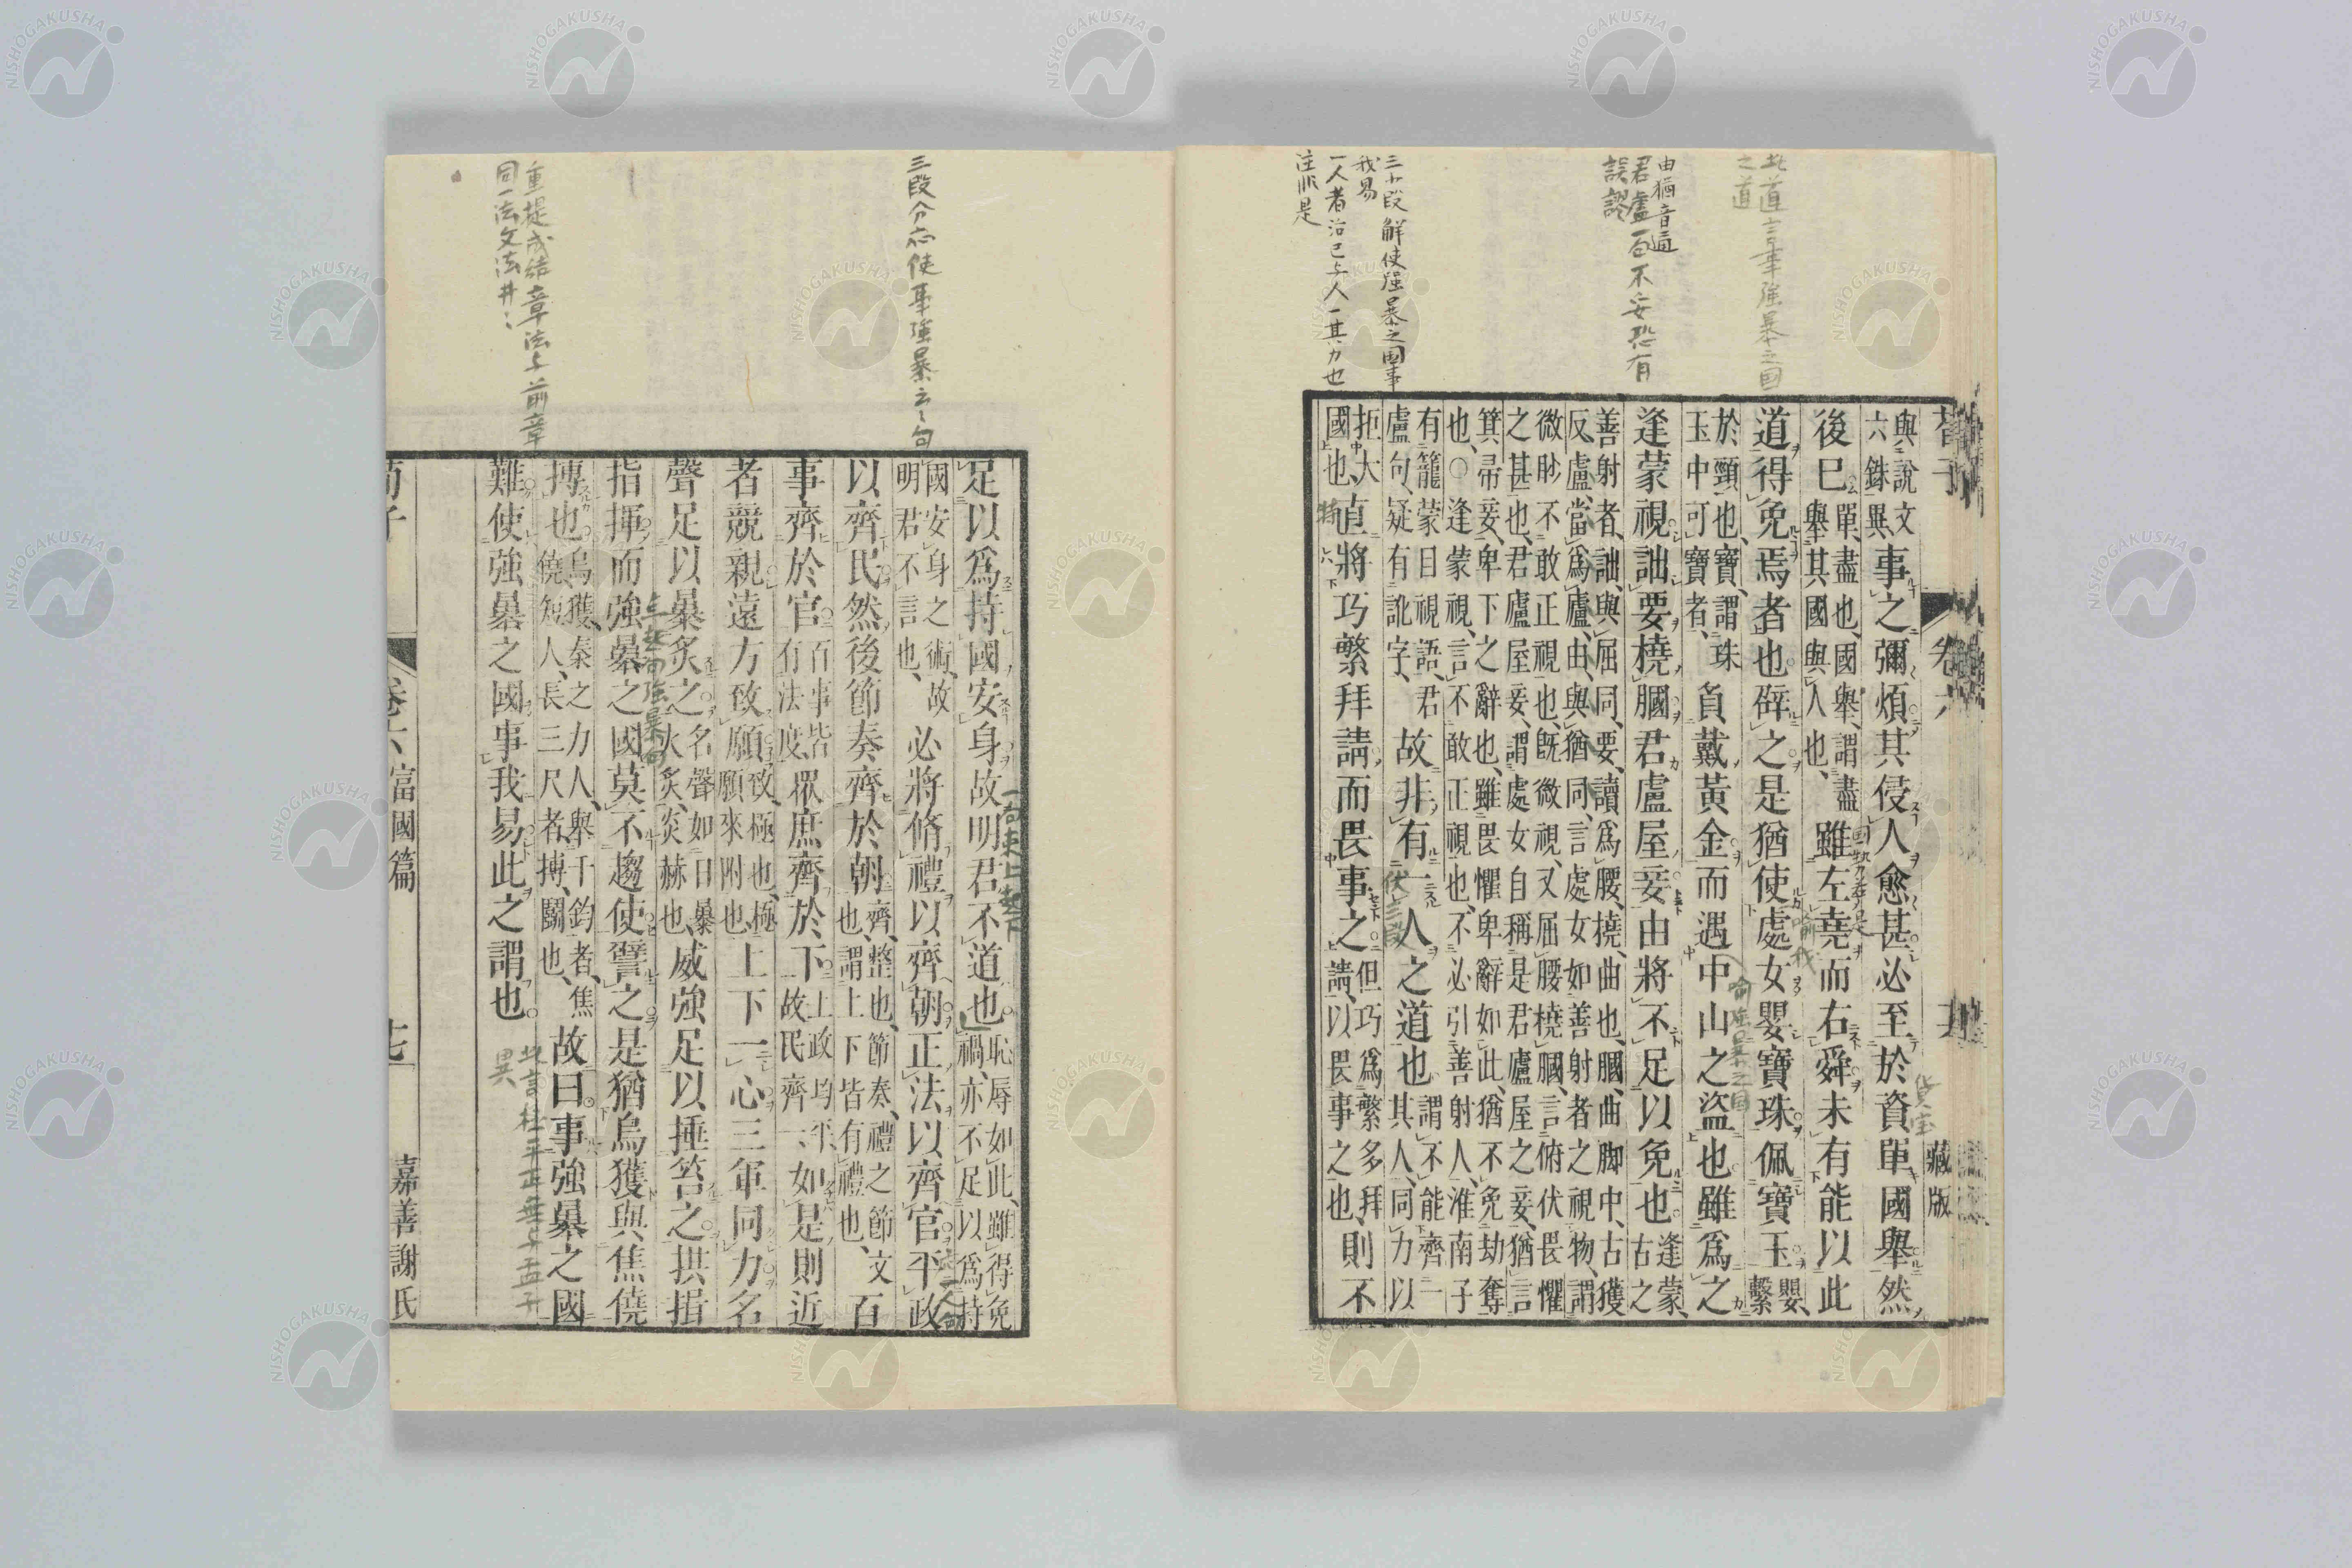 藏版
與說文
六銖異
事之彌煩其侵人愈甚必至於資單國舉然
後已
單盡也國舉謂盡
舉其國與人也
雖左堯而右舜未有能以此
道得免焉者也辟之是猶使處女嬰寶珠佩寶玉
嬰
繫
於頸也寶謂珠
玉中可寶者
負戴黃金而遇中山之盜也雖爲之
逢蒙視詘要橈膕君盧屋妾由將不足以免也
逢蒙
古之
善射者詘與屈同要讀爲腰橈曲也膕曲脚中古獲
反盧當爲廬由與猶同言處女如善射者之視物謂
微眇不敢正視也旣微視又屈腰橈膕言俯伏畏懼
之甚也君廬屋妾謂處女自稱是君廬屋之妾猶言
箕帚妾卑下之辭也雖畏懼卑辭如此猶不免劫奪
也○逢蒙視言不敢正視也不必引善射人淮南子
有籠蒙目視語君
盧句疑有訛字
故非有一人之道也
謂不能齊一
其人同力以
拒大
國也
直將巧繁拜請而畏事之
但巧爲繁多拜
請以畏事之也
則不
此道言事強暴之国
之道
由猶音通
君盧一句不妥恐有
誤謬
三小段解使强暴之国事
我易
一人者治己与人一其力也
注非是
足以爲持國安身故明君不道也
恥辱如此雖得免
禍亦不足以爲持
國安身之術故
明君不言也
必將脩禮以齊朝正法以齊官平政
以齊民然後節奏齊於朝
齊整也節奏禮之節文
也謂上下皆有禮也
百
事齊於官
百事皆
有法度
眾庶齊於下
上政均平
故民齊一
如是則近
者競親遠方致願
致極也極
願來附也
上下一心三軍同力名
聲足以暴炙之
名聲如日暴
火炙炎赫也
威強足以捶笞之拱揖
指揮而強暴之國莫不趨使譬之是猶烏獲與焦僥
搏也
烏獲秦之力人舉千鈞者焦
僥短人長三尺者搏鬭也
故曰事強暴之國
難使強暴之國事我易此之謂也
三段分応使事強暴云々句
重提或結章法与前章
同一法文法井々
荀子
卷六 富國篇
嘉善謝氏